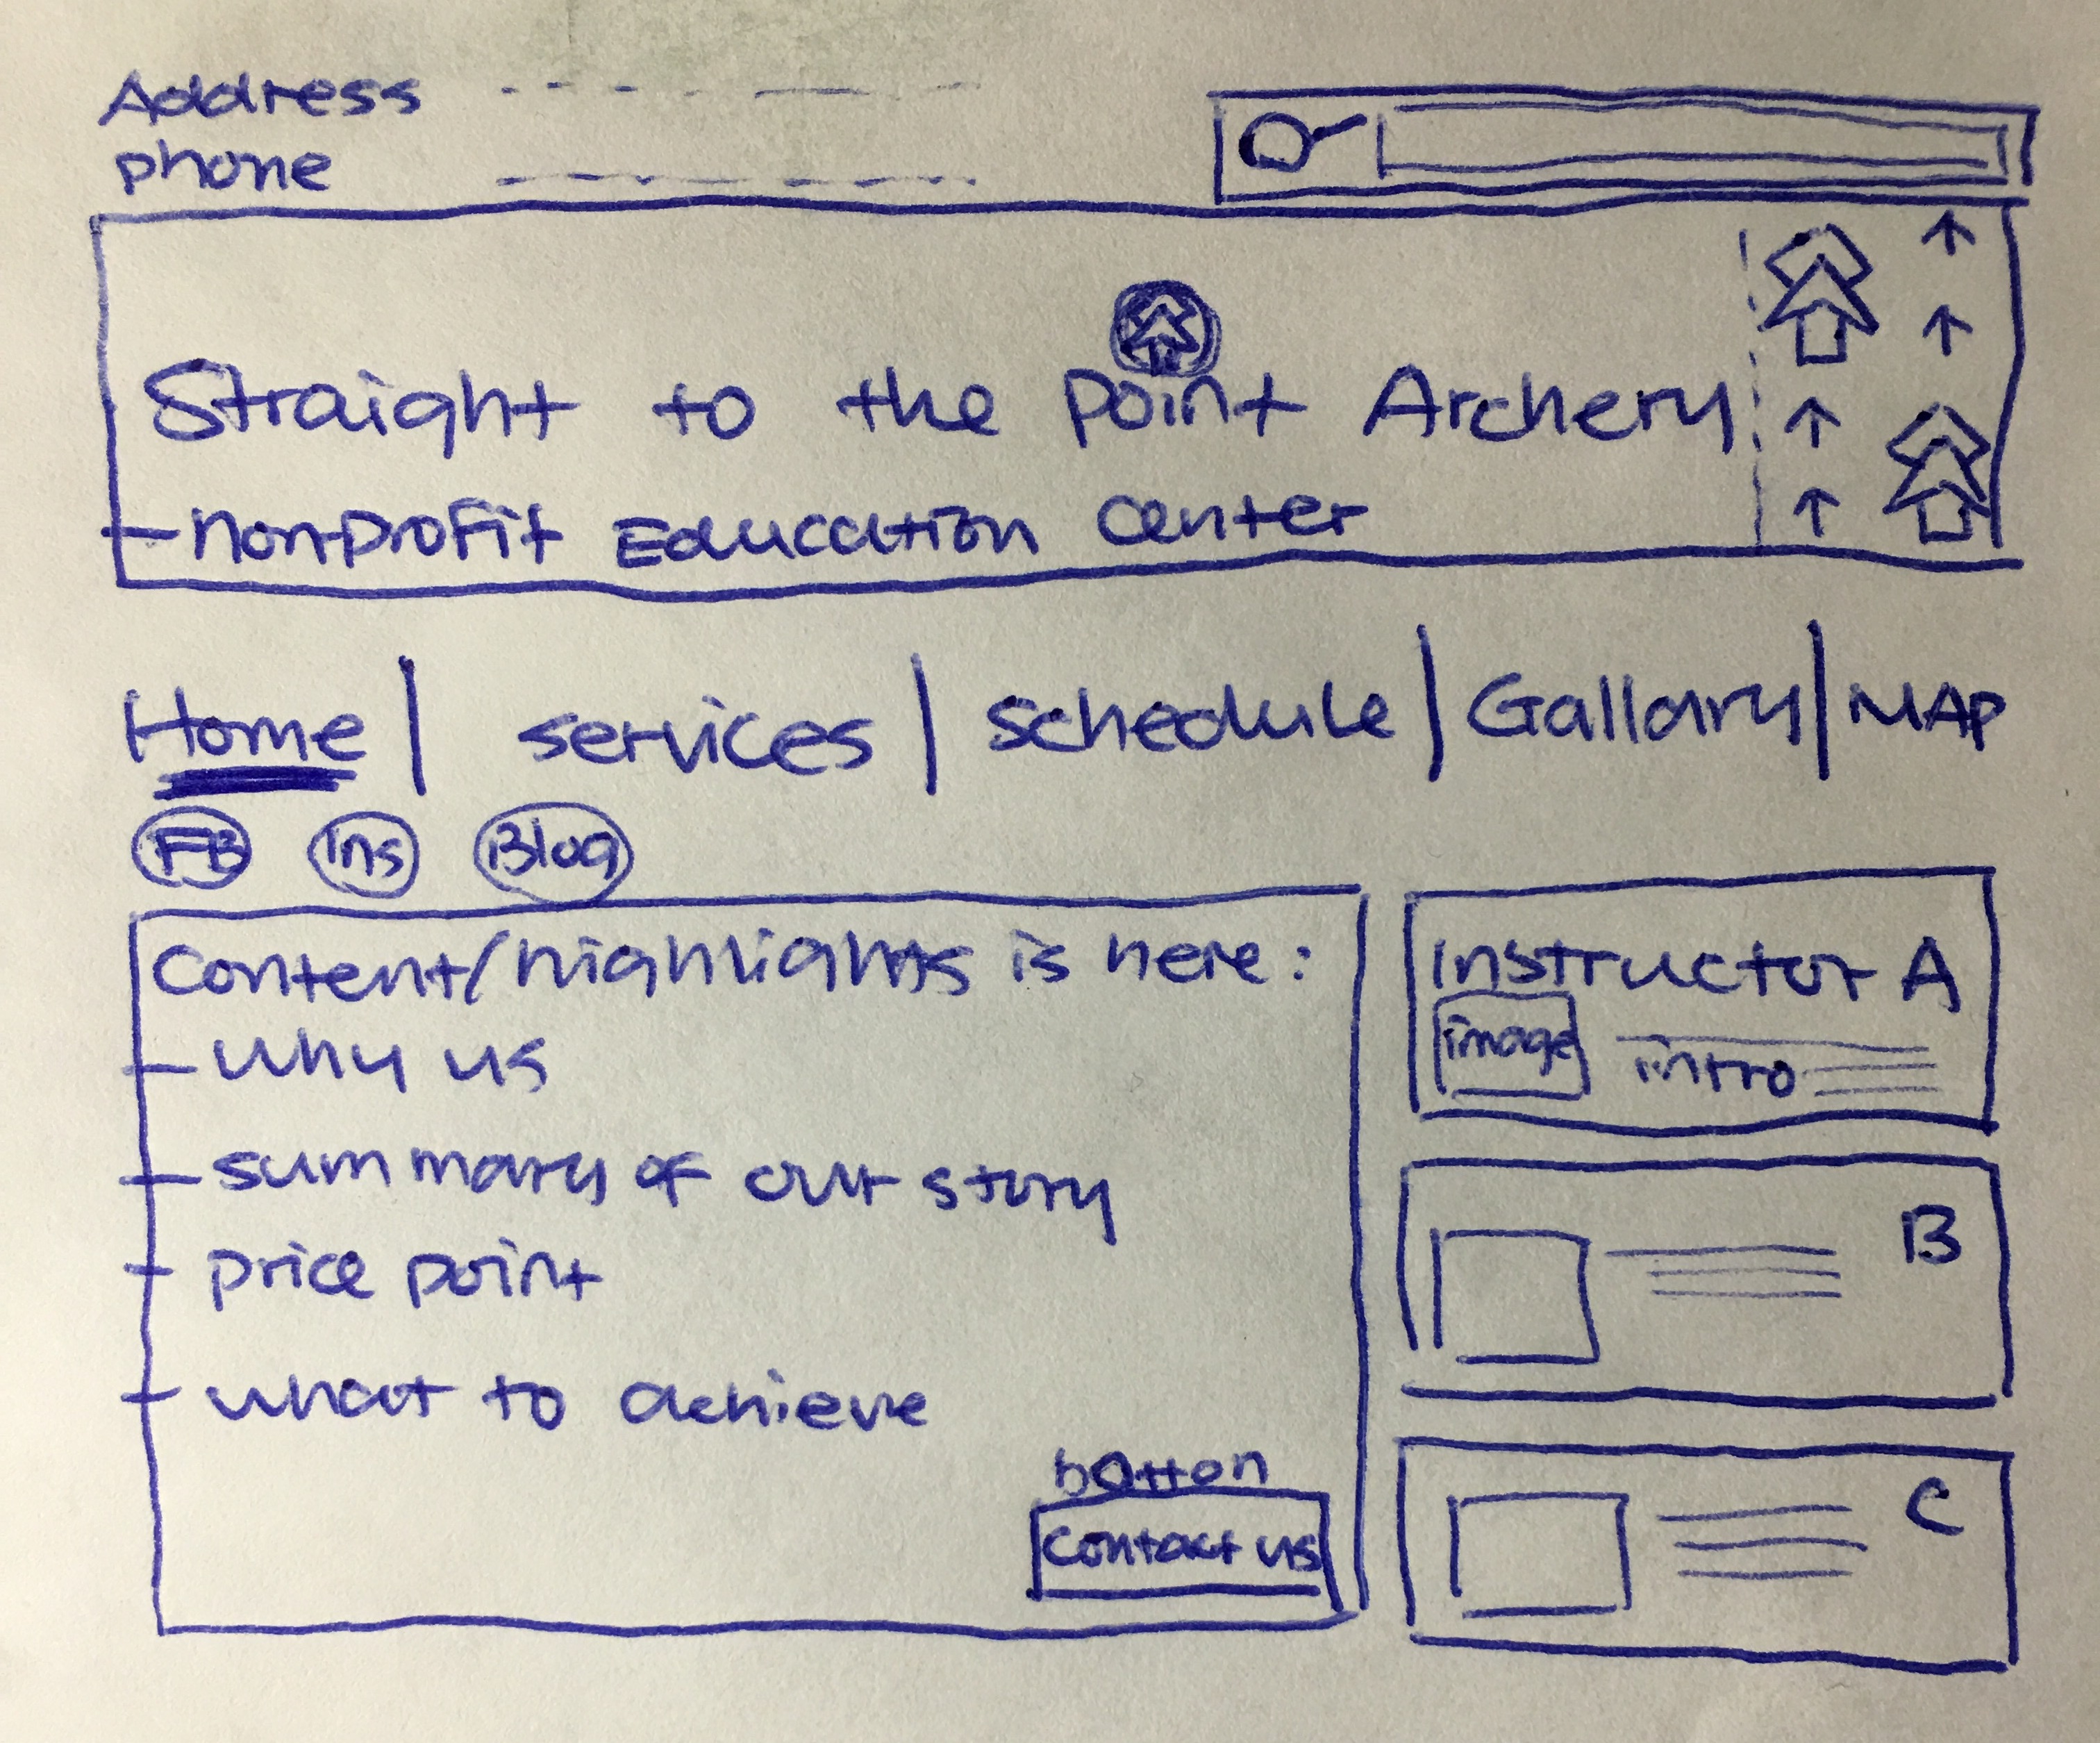 Address
phone
Straight to the point Archery
- nonprofit Education Center
Home | services | schedule | Gallary | MAP
FB Ins Blog
Content/highlights is here:
- why us
- summary of our story
- price point
- what to achieve
botton
contact us
Instructor A
image intro
B
C